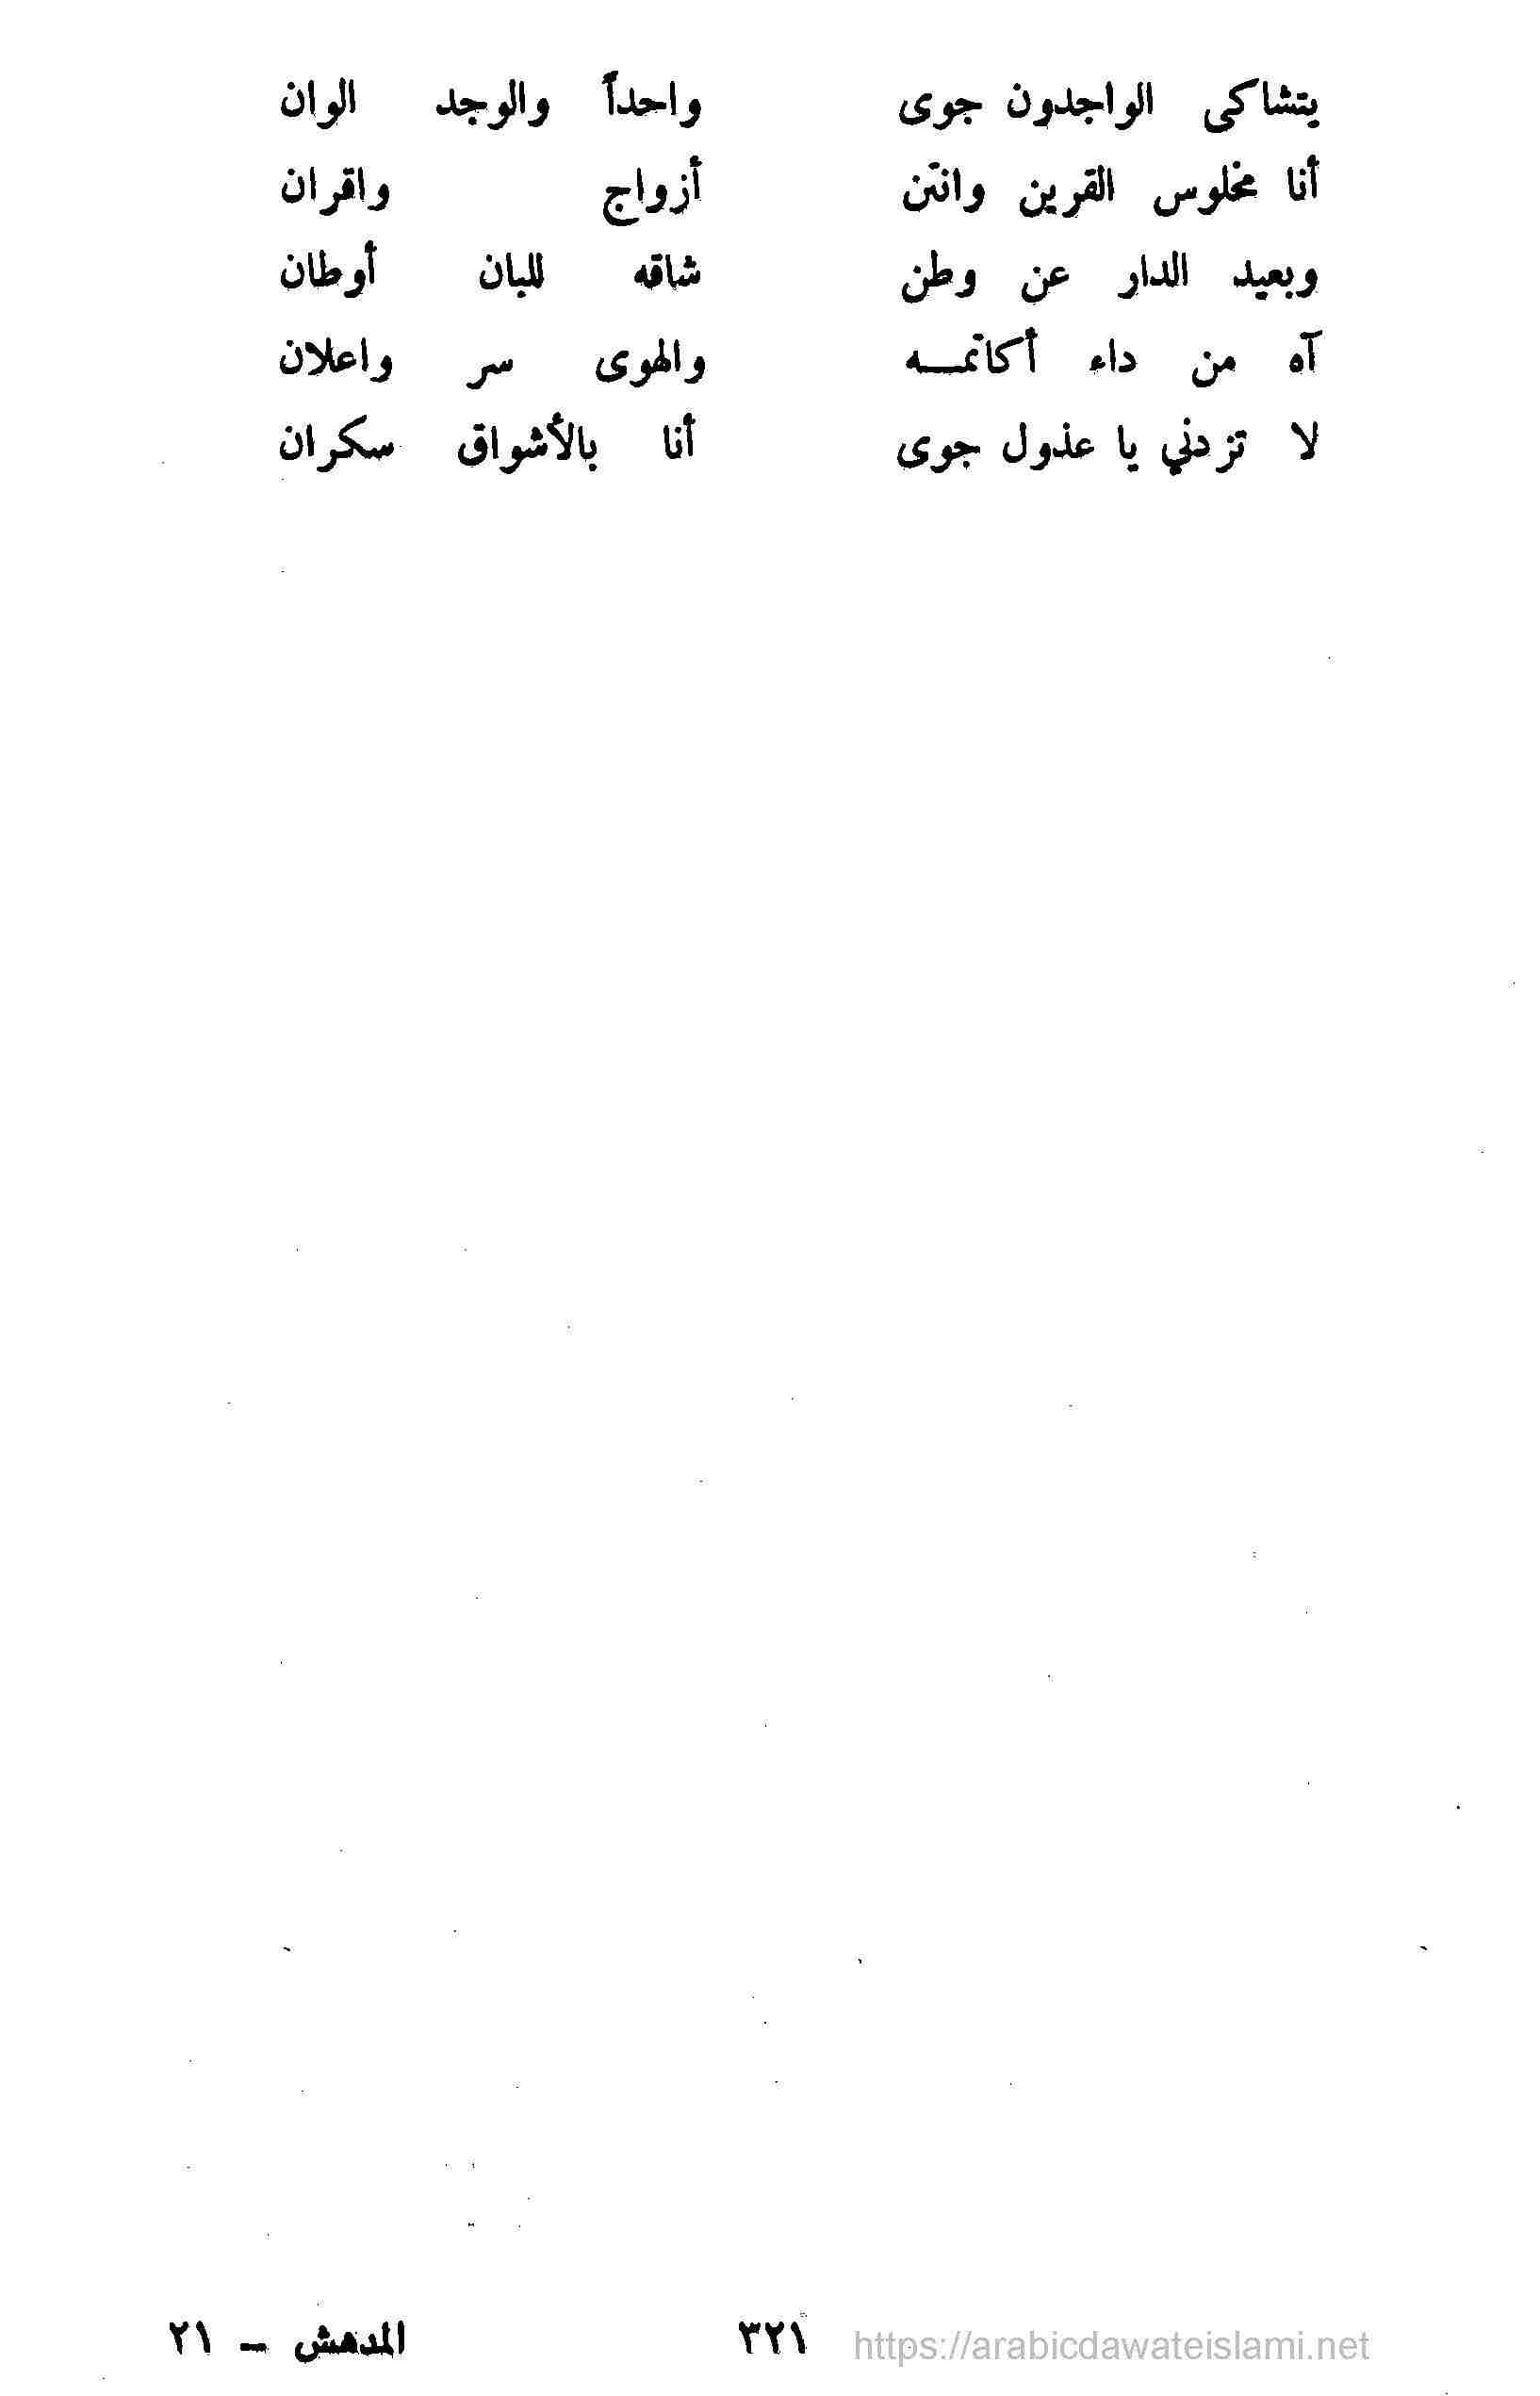 يتشاكى الواجدون جوى واحداً والوجد الوان
أنا مخلوس القرين وانتن أزواج واقران
وبعيد الدار عن وطن شاقه للبان أوطان
آه من داء أكاتمـــه والهوى سر واعلان
لا تزدني يا عذول جوى أنا بالأشواق سكران
٣٢١ المدهش – ٢١
https://arabicdawateislami.net